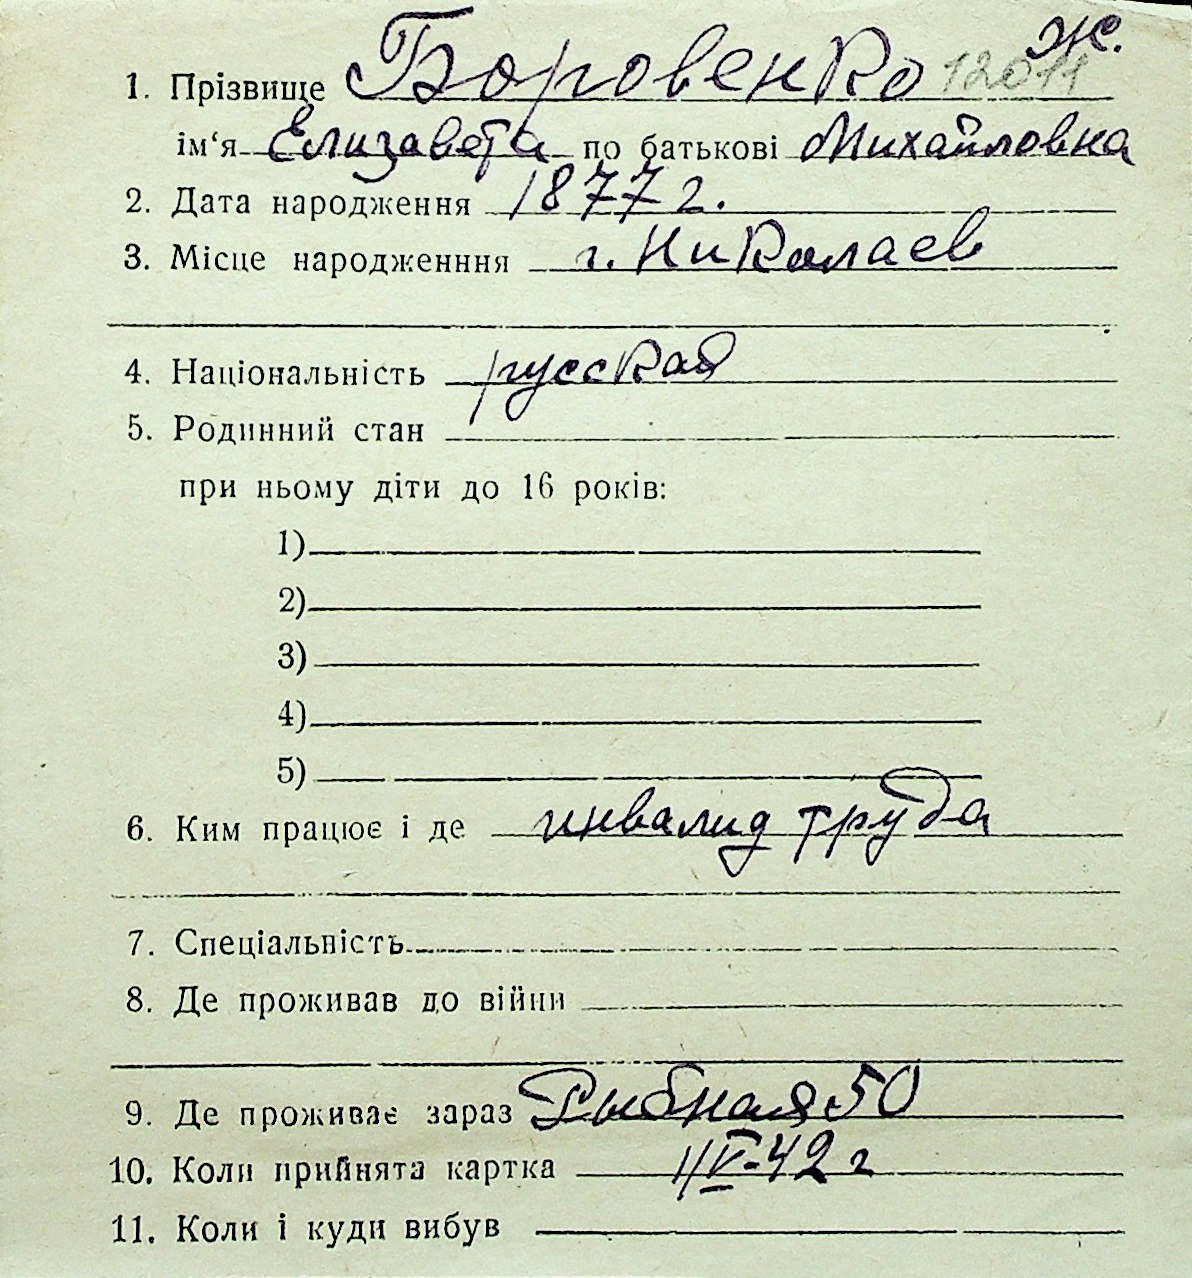 ж.
1. Прізвище Боровенко 12011
ім'я Елизавета по батькові Михайловна
2. Дата народження 1877 г.
3. Місце народженння г. Николаев
4. Національність русская
5. Родинний стан
при ньому діти до 16 років:
1)
2)
3)
4)
5)
6. Ким працює і де инвалид труда
7. Спеціальність
8. Де проживав до війни
9. Де проживає зараз Рыбная 50
10. Коли прийнята картка 1/V-42 г
11. Коли і куди вибув